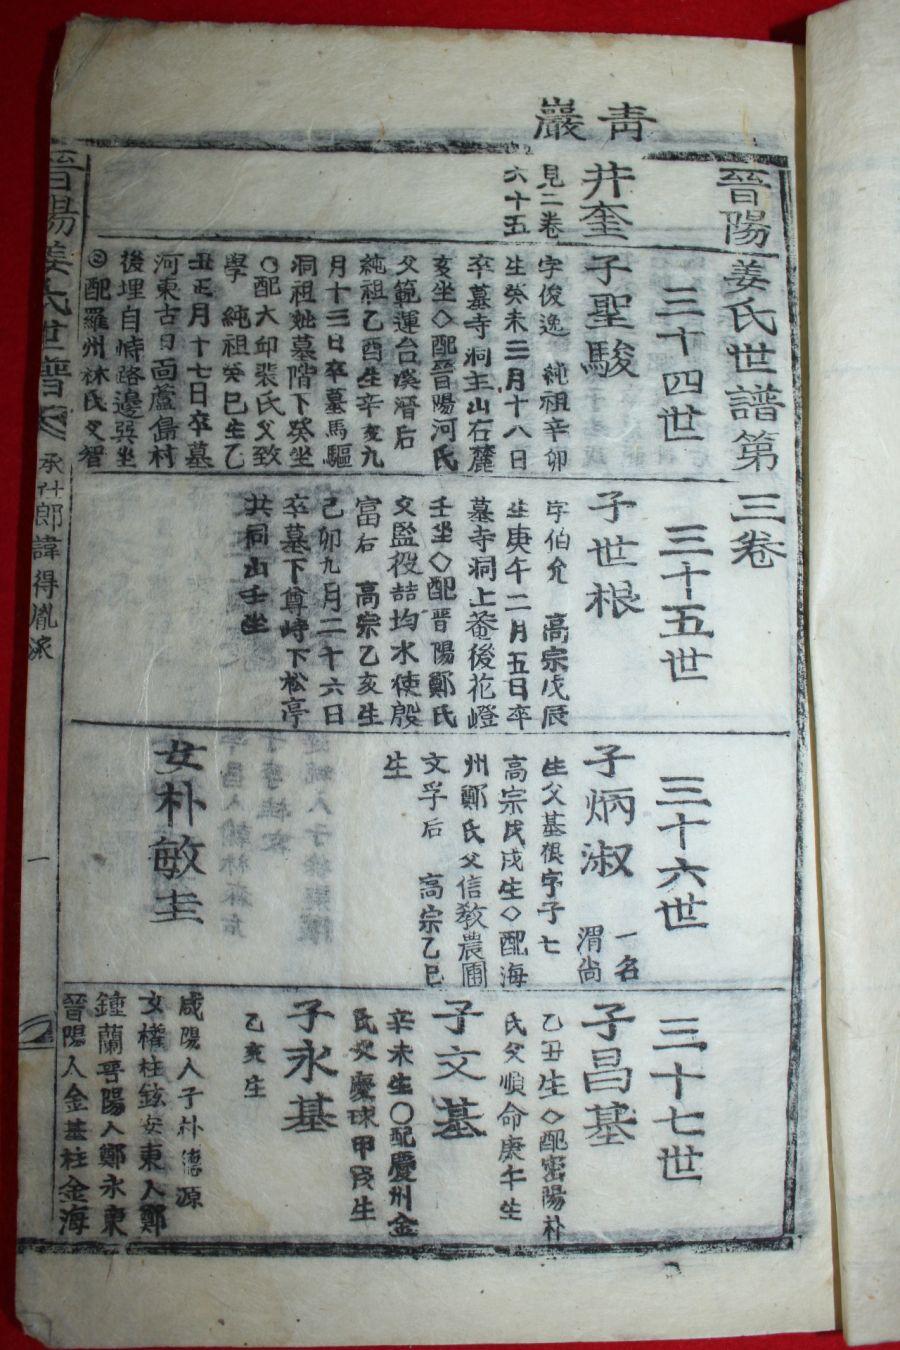 靑巖
晉陽姜氏世譜第三卷
井奎
見二卷
六十五
三十四世
子聖駿
字俊逸 純祖辛卯
生癸未三月十八日
卒墓寺洞主山右麓
亥坐◇配晉陽河氏
父範運台溪溍后
純祖乙酉生辛亥九
月十三日卒墓馬驅
洞祖妣墓階下癸坐
○配大邱裴氏父致
學 純祖癸巳生乙
丑正月十七日卒墓
河東古日面蘆島村
後埋自峙路邊巽坐
◎配羅州林氏父智
三十五世
子世根
字伯允 高宗戊辰
生庚午二月五日卒
墓寺洞上菴後花嶝
壬坐◇配晉陽鄭氏
父監役喆均水使殷
富后 高宗乙亥生
己卯九月二十六日
卒墓下尊峙下松亭
共同山壬坐
三十六世
子炳淑
一名
渭尙
生父基根字子七
高宗戊戌生◇配海
州鄭氏父信敎農圃
文孚后 高宗乙巳
生
女朴敏圭
三十七世
子昌基
乙丑生◇配密陽朴
氏父順命庚午生
子文基
辛未生○配慶州金
氏父慶球甲戌生
子永基
乙亥生
咸陽人子朴源
女權柱鉉安東人鄭
鐘蘭晋陽人鄭永東
晉陽人金基柱金海
晉陽姜氏世譜 承仕郎諱得胤派 一